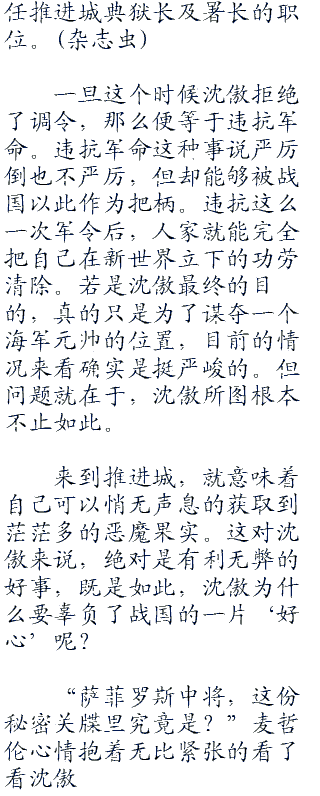 任推进城典狱长及署长的职
位。(杂志虫)
一旦这个时候沈傲拒绝
了调令，那么便等于违抗军
命。违抗军命这种事说严厉
倒也不严厉，但却能够被战
国以此作为把柄。违抗这么
一次军令后，人家就能完全
把自己在新世界立下的功劳
清除。若是沈傲最终的目
的，真的只是为了谋夺一个
海军元帅的位置，目前的情
况来看确实是挺严峻的。但
问题就在于，沈傲所图根本
不止如此。
来到推进城，就意味着
自己可以悄无声息的获取到
茫茫多的恶魔果实。这对沈
傲来说，绝对是有利无弊的
好事，既是如此，沈傲为什
么要辜负了战国的一片‘好
心’呢？
“萨菲罗斯中将，这份
秘密关牒里究竟是？”麦哲
伦心情抱着无比紧张的看了
看沈傲